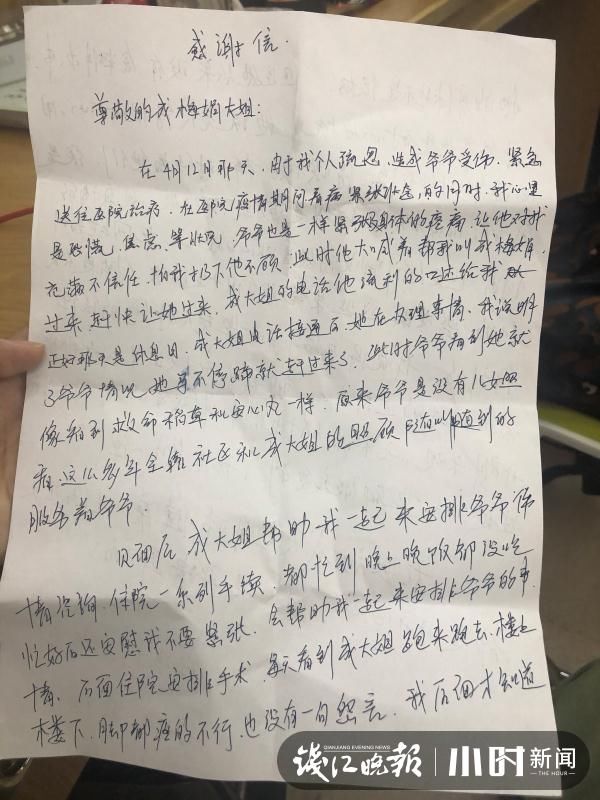 感谢信.
尊敬的成梅娟大姐：
在4月12日那天，由于我个人疏忽，造成爷爷受伤，紧急
送往医院治疗，在医院疫情期间看病紧张状态的同时，我心里
是恐慌，焦虑，等状况，爷爷也是一样紧张身体的疼痛，让他对我
充满不信任，怕我扔下他不顾，此时他大喊着帮我叫成梅娟
过来，赶快让她过来，成大姐的电话他流利的口述给我
正好那天是休息日，成大姐电话接通后，她在办理事情，我说明
了爷爷情况她毫不停蹄就赶过来了，此时爷爷看到她就
像看到救命稻草和安心丸一样，原来爷爷是没有儿女照
看，这么多年全靠社区和成大姐的照顾，随叫随到的
服务着爷爷.
见面后，成大姐帮助我一起来安排爷爷病
情咨询，住院一系列手续，都忙到晚上晚饭都没吃
忙好后还安慰我不要紧张，会帮助我一起来安排爷爷的事
情，后面住院安排手术，每天看到成大姐跑来跑去，楼上
楼下，脚都痛的不行，也没有一句怨言，我后面才知道
QIANJIANG EVENING NEWS
钱江晚报 小时新闻